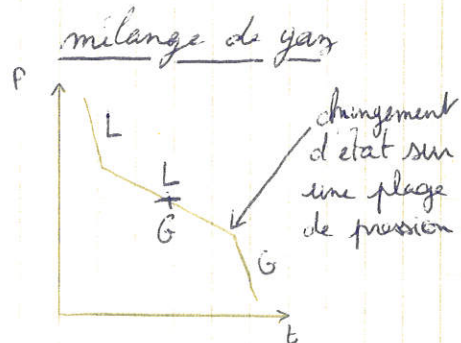 mélange de gaz
P
L
L
+
G
G
t
changement
d'état sur
une plage
de pression